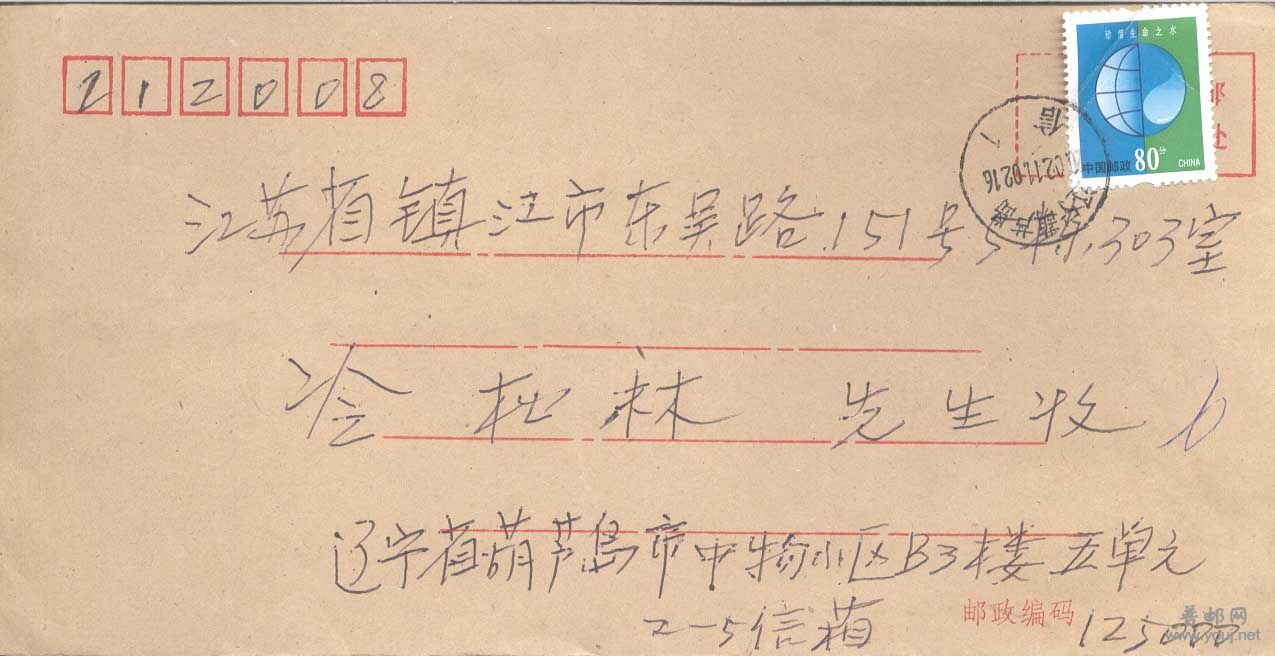 212008
珍惜生命之水
中国邮政 80分 CHINA
邮
处
江苏省镇江市东吴路151号5栋303室
冷松林 先生收
辽宁省葫芦岛市中物小区B3楼五单元
2-5信箱
邮政编码 125000
普邮网
www.ypuj.net